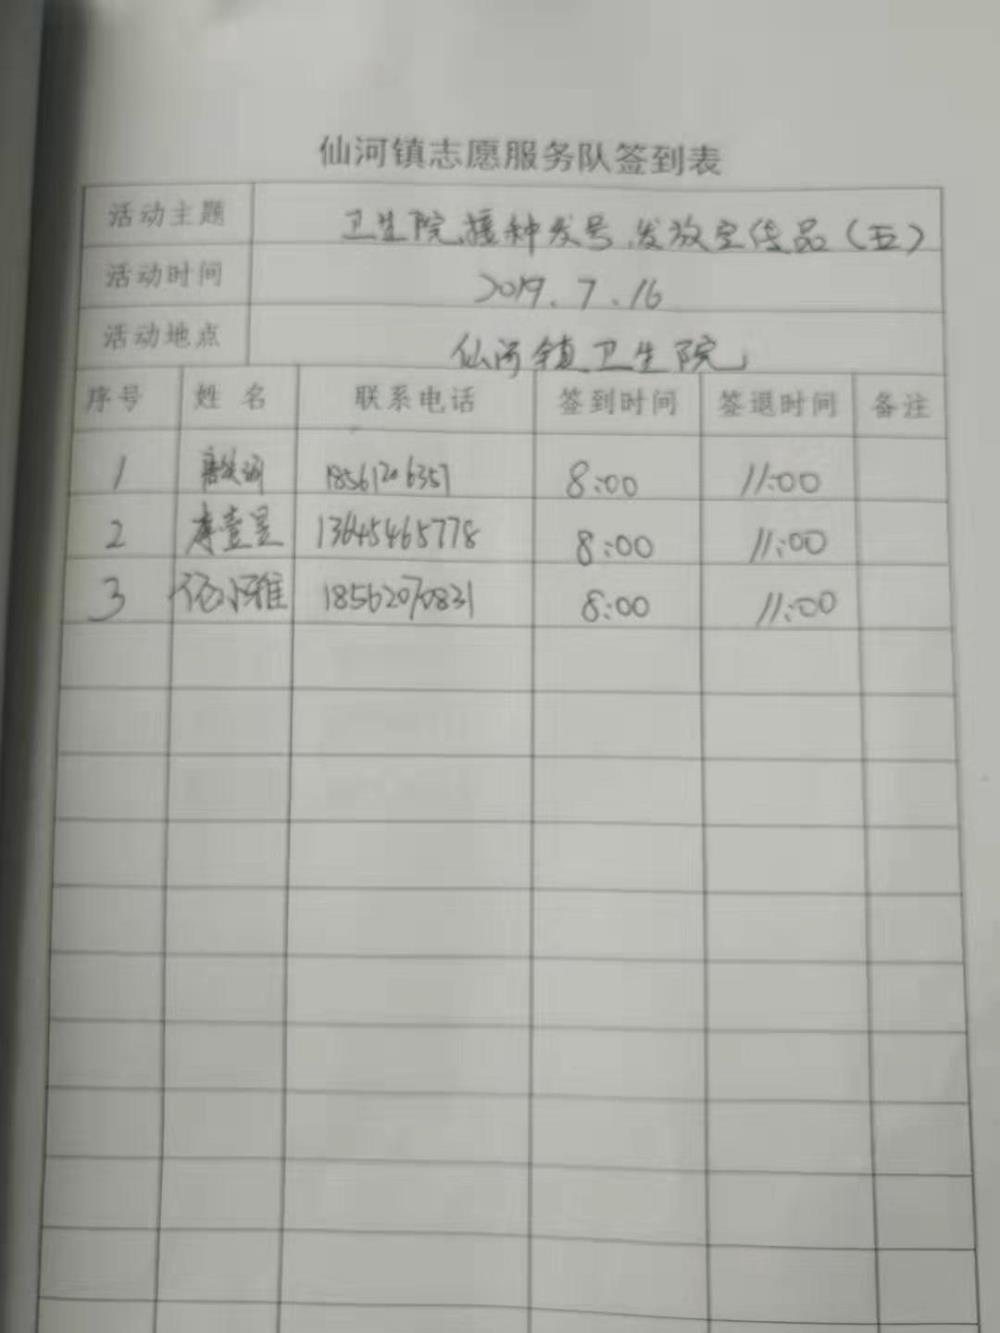 仙河镇志愿服务队签到表
活动主题 卫生院、接种发号、发放宣传品（五）
活动时间 2019.7.16
活动地点 仙河镇卫生院
序号 姓名 联系电话 签到时间 签退时间 备注
1 18561206351 8:00 11:00
2 李壹昱 13645465778 8:00 11:00
3 伍小雅 18562070831 8:00 11:00